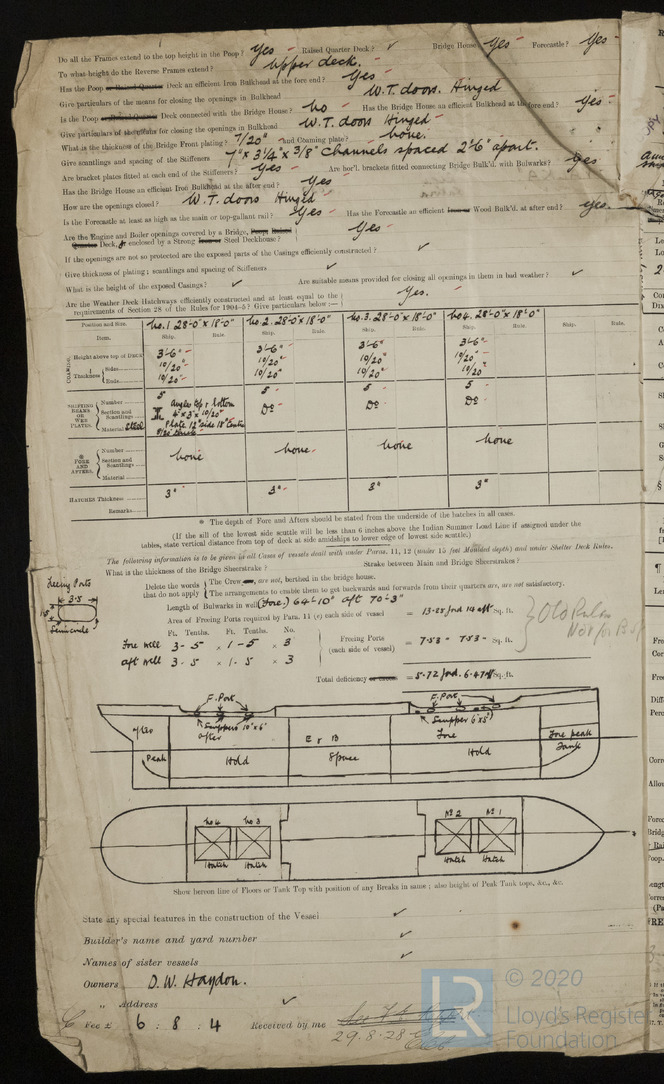 Do all the Frames extend to the top height in the Poop? Yes Raised Quarter Deck? ✓ Bridge House Yes Forecastle? Yes
To what height do the Reverse Frames extend? Upper deck.
Has the Poop or Raised Quarter Deck an efficient Iron Bulkhead at the fore end? Yes
Give particulars of the means for closing the openings in Bulkhead W.T. doors Hinged
Is the Poop or Raised Quarter Deck connected with the Bridge House? No Has the Bridge House an efficient Bulkhead at the fore end? Yes
Give particulars of the means for closing the openings in Bulkhead W.T. doors Hinged
What is the thickness of the Bridge Front plating? 7/20" and Coaming plate? none.
Give scantlings and spacing of the Stiffeners 7" x 3 1/4" x 3/8" Channels spaced 2'6" apart.
Are bracket plates fitted at each end of the Stiffeners? Yes Are hor'l. brackets fitted connecting Bridge Bulk'd. with Bulwarks? Yes
Has the Bridge House an efficient Iron Bulkhead at the after end? Yes
How are the openings closed? W.T. doors Hinged
Is the Forecastle at least as high as the main or top-gallant rail? Yes Has the Forecastle an efficient Iron or Wood Bulk'd. at after end? Yes
Are the Engine and Boiler openings covered by a Bridge, Poop, Raised
Quarter Deck, or enclosed by a Strong Iron or Steel Deckhouse? Yes
If the openings are not so protected are the exposed parts of the Casings efficiently constructed? ✓
Give thickness of plating; scantlings and spacing of Stiffeners ✓
What is the height of the exposed Casings? ✓ Are suitable means provided for closing all openings in them in bad weather? ✓
Are the Weather Deck Hatchways efficiently constructed and at least equal to the
requirements of Section 28 of the Rules for 1904-5? Give particulars below:— Yes.
Position and Size. No.1 28'-0" x 18'-0" No.2 28'-0" x 18'-0" No.3 28'-0" x 18'-0" No 4. 28'-0" x 18'-0"
Item. Ship. Rule. Ship. Rule. Ship. Rule. Ship. Rule. Ship. Rule.
COAMING
Height above top of Deck 3'-6" 3'-6" 3'-6" 3'-6"
Thickness Sides 10/20" 10/20" 10/20" 10/20"
Ends 10/20" 10/20" 10/20" 10/20
SHIFTING BEAMS OR WEB PLATES.
Number 5 5 5 5
Section and Scantlings Angles top & bottom 4" x 3" x 10/20" Do Do Do
Material Steel Plate 12" side 18" centre
* FORE AND AFTERS.
Number
Section and Scantlings none none none none
Material
HATCHES Thickness 3" 3" 3" 3"
Remarks
* The depth of Fore and Afters should be stated from the underside of the hatches in all cases.
(If the sill of the lowest side scuttle will be less than 6 inches above the Indian Summer Load Line if assigned under the
tables, state vertical distance from top of deck at side amidships to lower edge of lowest side scuttle.)
The following information is to be given in all Cases of vessels dealt with under Paras. 11, 12 (under 15 feet Moulded depth) and under Shelter Deck Rules.
What is the thickness of the Bridge Sheerstrake? Strake between Main and Bridge Sheerstrakes?
Delete the words that do not apply
The Crew are, are not, berthed in the bridge house.
The arrangements to enable them to get backwards and forwards from their quarters are, are not satisfactory.
Freeing Ports
3-5
1-5
Semicircle
Length of Bulwarks in well (Fore) 64'-10" aft 70'-3"
Area of Freeing Ports required by Para. 11 (e) each side of vessel = 13-25 ford 14 aft Sq. ft.
Ft. Tenths. Ft. Tenths. No.
Fore well 3 - 5 x 1 - 5 x 3
aft well 3 - 5 x 1 - 5 x 3
Freeing Ports (each side of vessel) = 7-53 - 7-53 - Sq. ft.
Old Rules
Not for B
Total deficiency or excess = 5-72 ford. 6-47 aft Sq. ft.
F. Port
Scuppers 10" x 6"
after
Peak
Hold
E & B
Space
F. Port
Scupper 6" x 5"
Fore
Hold
Fore peak
Tank
No 4
Hatch
No 3
Hatch
No 2
Hatch
No 1
Hatch
Show hereon line of Floors or Tank Top with position of any Breaks in same; also height of Peak Tank tops, &c., &c.
State any special features in the construction of the Vessel ✓
Builder's name and yard number ✓
Names of sister vessels ✓
Owners D. W. Haydon.
„ Address ✓
Fee £ 6 : 8 : 4 Received by me
29.8.28
LR
© 2020
Lloyd's Register
Foundation